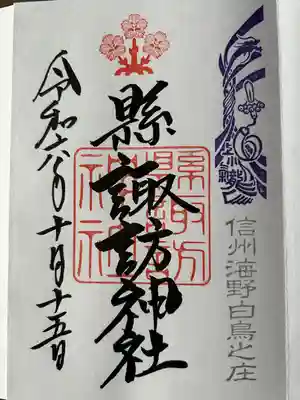 信州海野白鳥之庄
縣諏訪神社
縣諏訪
神社
令和六年十月十五日